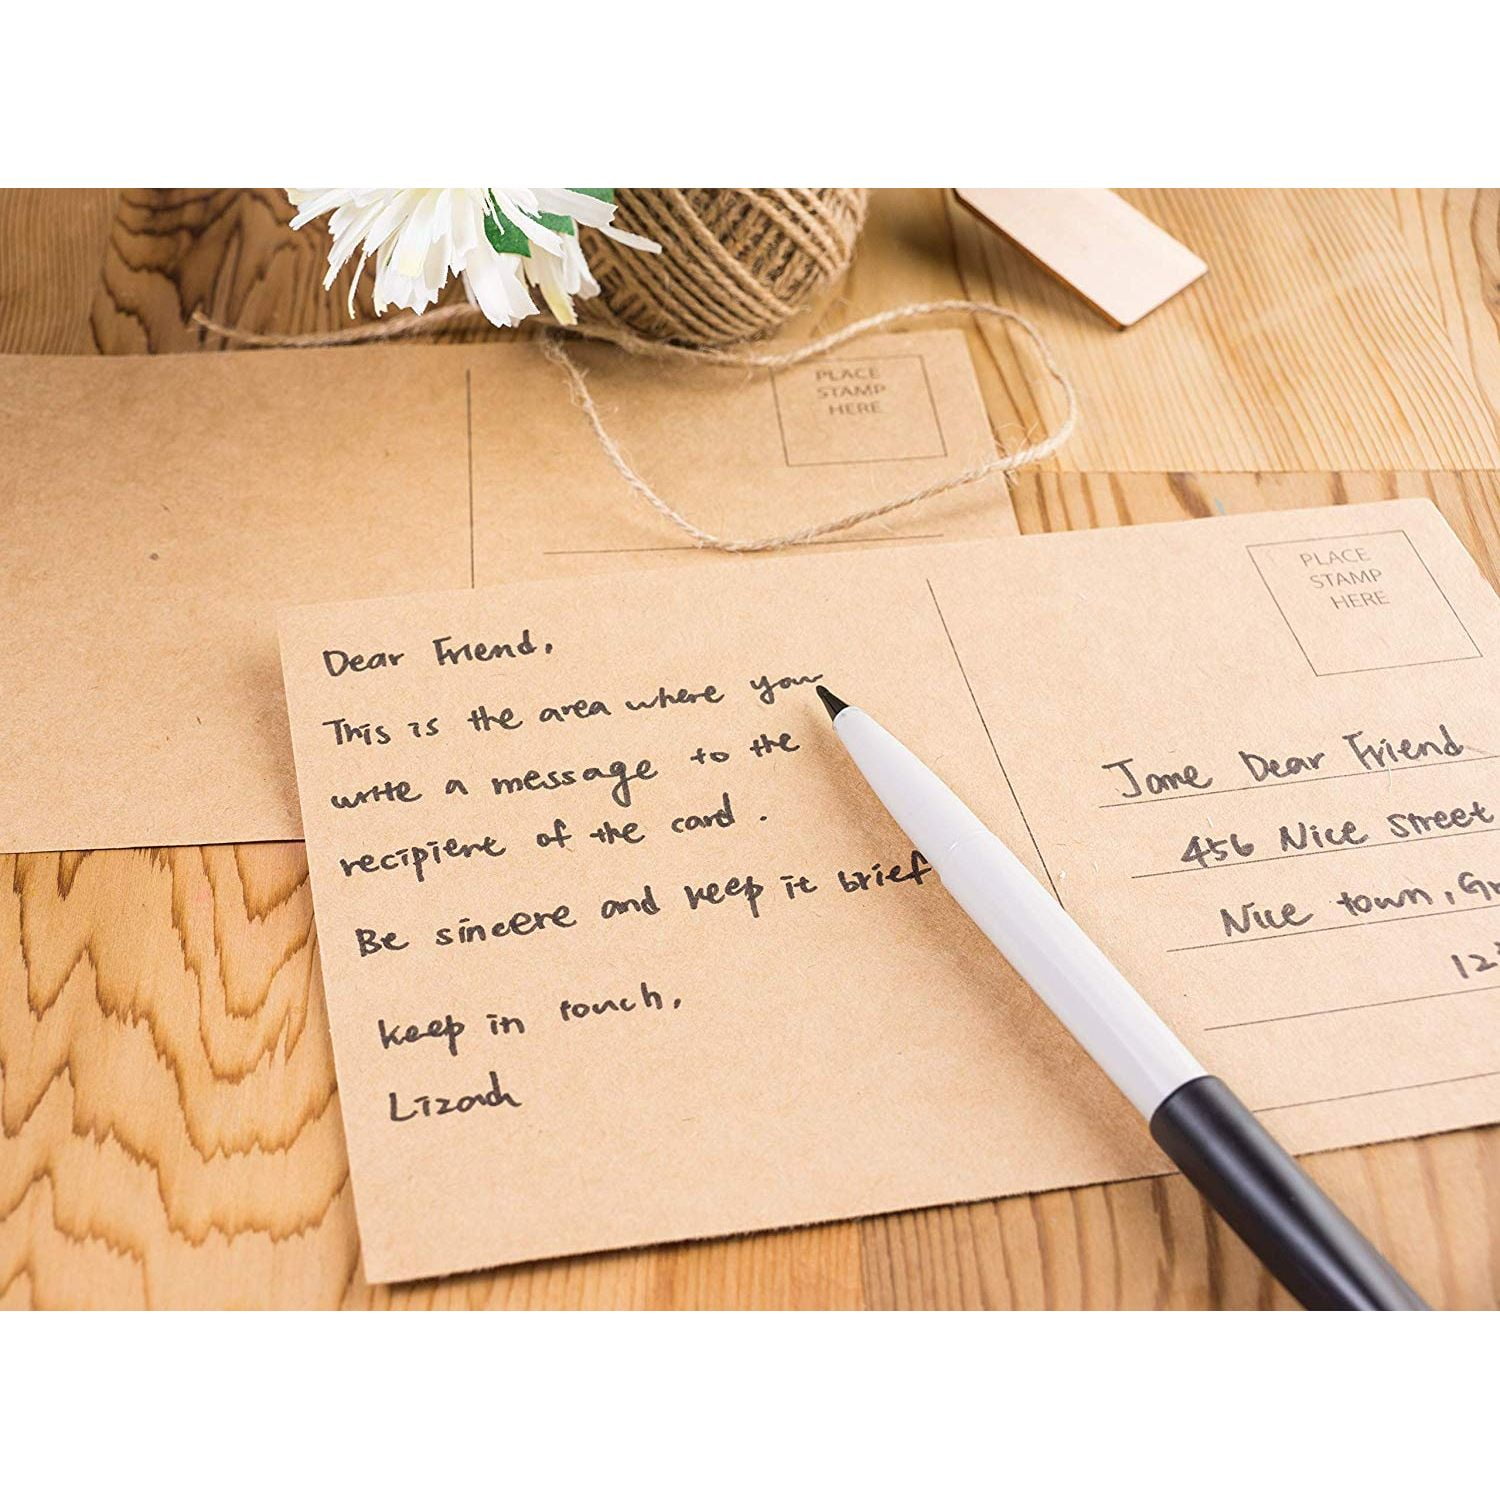 PLACE
STAMP
HERE
PLACE
STAMP
HERE
Dear Friend,
This is the area where you
write a message to the
recipient of the card.
Be sincere and keep it brief
keep in touch,
Jame Dear Friend
456 Nice Street
Nice town,